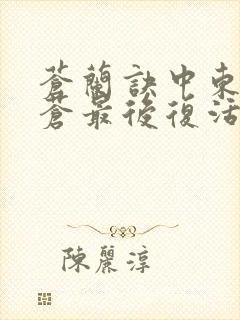 蒼蘭訣中東
蒼最後復活
陳麗淳